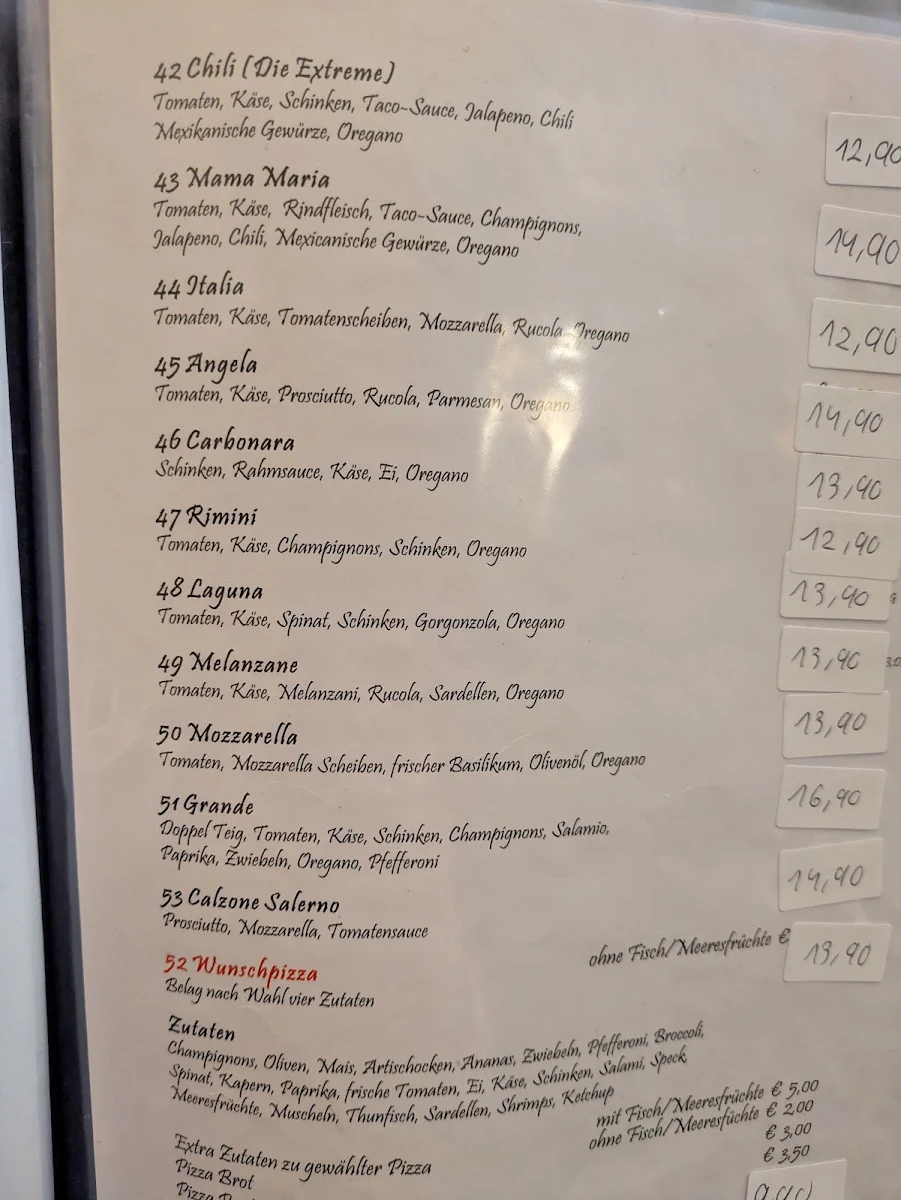 42 Chili (Die Extreme)
Tomaten, Käse, Schinken, Taco-Sauce, Jalapeno, Chili
Mexikanische Gewürze, Oregano
12,90
43 Mama Maria
Tomaten, Käse, Rindfleisch, Taco-Sauce, Champignons,
Jalapeno, Chili, Mexicanische Gewürze, Oregano
14,90
44 Italia
Tomaten, Käse, Tomatenscheiben, Mozzarella, Rucola, Oregano
12,90
45 Angela
Tomaten, Käse, Prosciutto, Rucola, Parmesan, Oregano
14,90
46 Carbonara
Schinken, Rahmsauce, Käse, Ei, Oregano
13,90
47 Rimini
Tomaten, Käse, Champignons, Schinken, Oregano
12,90
48 Laguna
Tomaten, Käse, Spinat, Schinken, Gorgonzola, Oregano
13,90
49 Melanzane
Tomaten, Käse, Melanzani, Rucola, Sardellen, Oregano
13,90
50 Mozzarella
Tomaten, Mozzarella Scheiben, frischer Basilikum, Olivenöl, Oregano
13,90
51 Grande
Doppel Teig, Tomaten, Käse, Schinken, Champignons, Salamio,
Paprika, Zwiebeln, Oregano, Pfefferoni
16,90
53 Calzone Salerno
Prosciutto, Mozzarella, Tomatensauce
14,90
52 Wunschpizza
Belag nach Wahl vier Zutaten
ohne Fisch/Meeresfrüchte € 13,90
Zutaten
Champignons, Oliven, Mais, Artischocken, Ananas, Zwiebeln, Pfefferoni, Broccoli,
Spinat, Kapern, Paprika, frische Tomaten, Ei, Käse, Schinken, Salami, Speck
Meeresfrüchte, Muscheln, Thunfisch, Sardellen, Shrimps, Ketchup
mit Fisch/Meeresfrüchte € 5,00
ohne Fisch/Meeresfüchte € 2,00
Extra Zutaten zu gewählter Pizza
€ 3,00
Pizza Brot
€ 3,50
Pizza